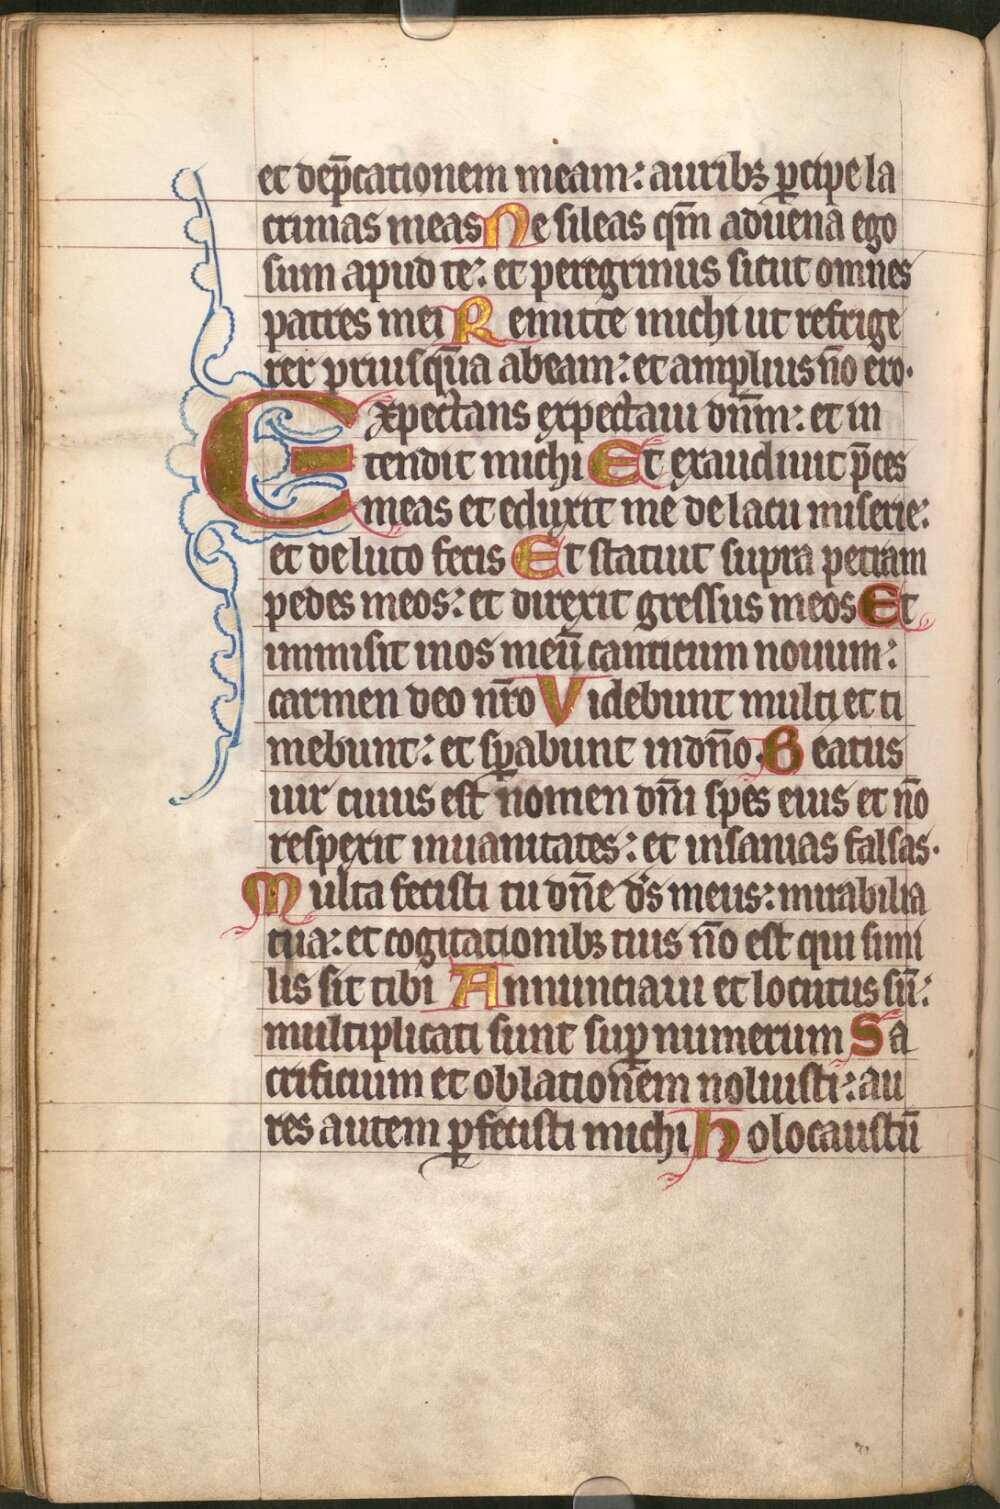 et dep̄cationem meam: auribꝫ ꝑcipe la
crimas meas Ne sileas qm̄ aduena ego
sum apud te: et peregrinus sicut omnes
patres mei Remitte michi ut refrige
rer priusq̄ua abeam: et amplius nō ero.
Expectans expectaui dn̄m: et in
tendit michi Et exaudiuit p̄ces
meas et eduxit me de lacu miserie:
et de luto fecis Et statuit supra petram
pedes meos: et direxit gressus meos Et
inmisit inos meū canticum nouum:
carmen deo nr̄o Videbunt multi et ti
mebunt: et sꝑabunt in dn̄o Beatus
uir cuius est nomen dn̄i spes eius et nō
respexit inuanitates: et insanias falsas.
Multa fecisti tu dn̄e d̄s meus: mirabilia
tua: et cogitationibꝫ tuis nō est qui simi
lis sit tibi Annunciaui et locutus sū:
multiplicati sunt suꝑ numerum Sa
crificium et oblationem noluisti: au
res autem ꝑfecisti michi Holocaustū